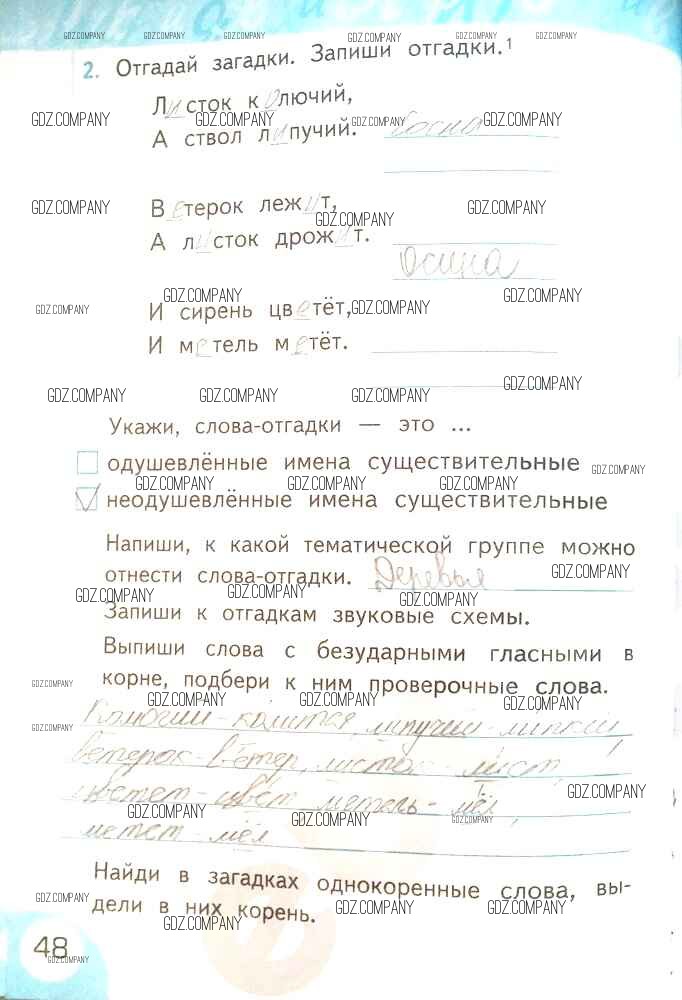 GDZ.COMPANY GDZ.COMPANY GDZ.COMPANY GDZ.COMPANY GDZ.COMPANY GDZ.COMPANY
2. Отгадай загадки. Запиши отгадки.¹
Листок колючий,
GDZ.COMPANY GDZ.COMPANY GDZ.COMPANY
А ствол липучий. Сосна
Ветерок лежит,
GDZ.COMPANY GDZ.COMPANY GDZ.COMPANY
А листок дрожит.
Осина
GDZ.COMPANY GDZ.COMPANY
И сирень цветёт,
GDZ.COMPANY GDZ.COMPANY
И метель метёт.
GDZ.COMPANY GDZ.COMPANY GDZ.COMPANY GDZ.COMPANY
Укажи, слова-отгадки — это ...
одушевлённые имена существительные
GDZ.COMPANY
GDZ.COMPANY GDZ.COMPANY GDZ.COMPANY
неодушевлённые имена существительные
Напиши, к какой тематической группе можно
отнести слова-отгадки. Деревья
GDZ.COMPANY
GDZ.COMPANY GDZ.COMPANY GDZ.COMPANY
Запиши к отгадкам звуковые схемы.
Выпиши слова с безударными гласными в
корне, подбери к ним проверочные слова.
GDZ.COMPANY
GDZ.COMPANY GDZ.COMPANY GDZ.COMPANY
Колючий - колится, липучий - липкий,
GDZ.COMPANY
Ветерок - ветер, листок - лист,
цветет - цвет метель - мёл,
GDZ.COMPANY GDZ.COMPANY GDZ.COMPANY GDZ.COMPANY
метет - мёл
Найди в загадках однокоренные слова, вы-
GDZ.COMPANY
дели в них корень.
GDZ.COMPANY GDZ.COMPANY GDZ.COMPANY
48
GDZ.COMPANY